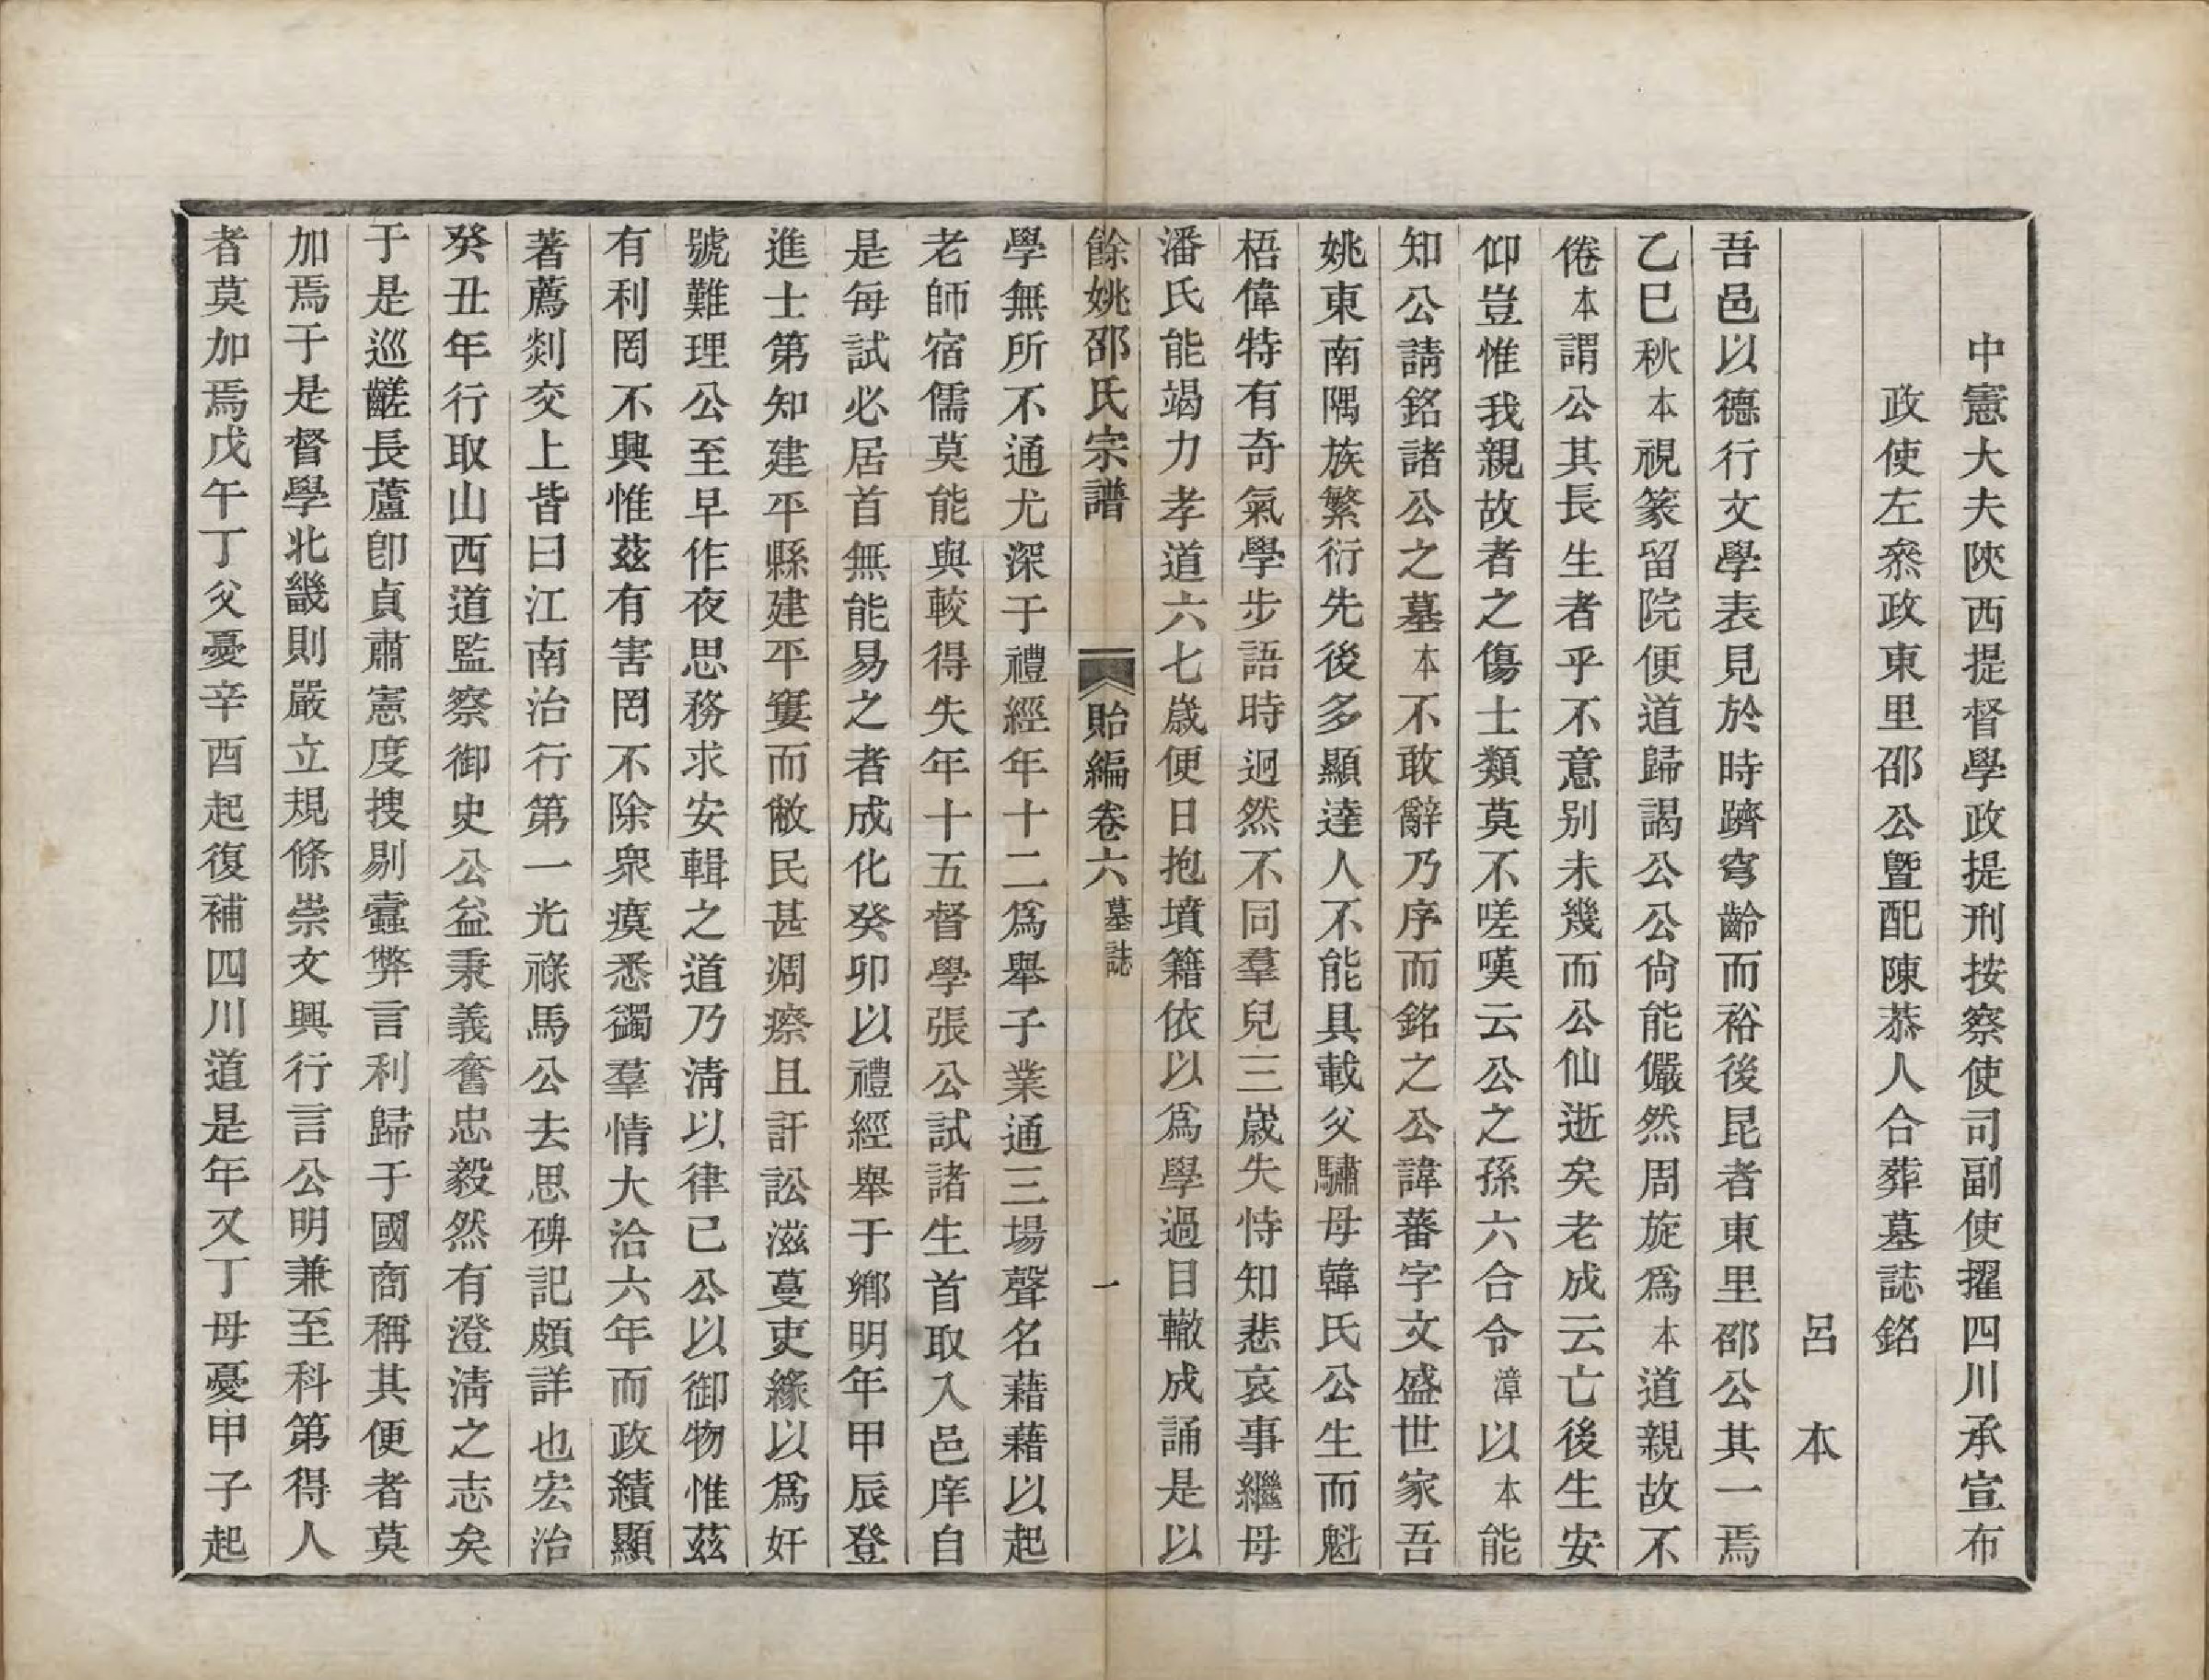 中憲大夫陝西提督學政提刑按察使司副使擢四川承宣布
政使左叅政東里邵公曁配陳恭人合葬墓誌銘
呂本
吾邑以德行文學表見於時躋穹齡而裕後昆者東里邵公其一焉
乙巳秋本視篆留院便道歸謁公公尙能儼然周旋爲本道親故不
倦本謂公其長生者乎不意别未幾而公仙逝矣老成云亡後生安
仰豈惟我親故者之傷士類莫不嗟嘆云公之孫六合令漳以本能
知公請銘諸公之墓本不敢辭乃序而銘之公諱蕃字文盛世家吾
姚東南隅族繁衍先後多顯達人不能具載父驌母韓氏公生而魁
梧偉特有奇氣學步語時迥然不同羣兒三歲失恃知悲哀事繼母
潘氏能竭力孝道六七歲便日抱墳籍依以爲學過目輒成誦是以
餘姚邵氏宗譜 貽編卷六 墓誌 一
學無所不通尤深于禮經年十二爲舉子業通三場聲名藉藉以起
老師宿儒莫能與較得失年十五督學張公試諸生首取入邑庠自
是每試必居首無能易之者成化癸卯以禮經舉于鄉明年甲辰登
進士第知建平縣建平寠而敝民甚凋瘵且訐訟滋蔓吏緣以爲奸
號難理公至早作夜思務求安輯之道乃淸以律已公以御物惟茲
有利罔不興惟茲有害罔不除衆瘼悉蠲羣情大洽六年而政績顯
著薦剡交上皆曰江南治行第一光祿馬公去思碑記頗詳也宏治
癸丑年行取山西道監察御史公益秉義奮忠毅然有澄淸之志矣
于是巡鹺長蘆卽貞肅憲度搜剔蠧弊言利歸于國商稱其便者莫
加焉于是督學北畿則嚴立規條崇文興行言公明兼至科第得人
者莫加焉戊午丁父憂辛酉起復補四川道是年又丁母憂甲子起